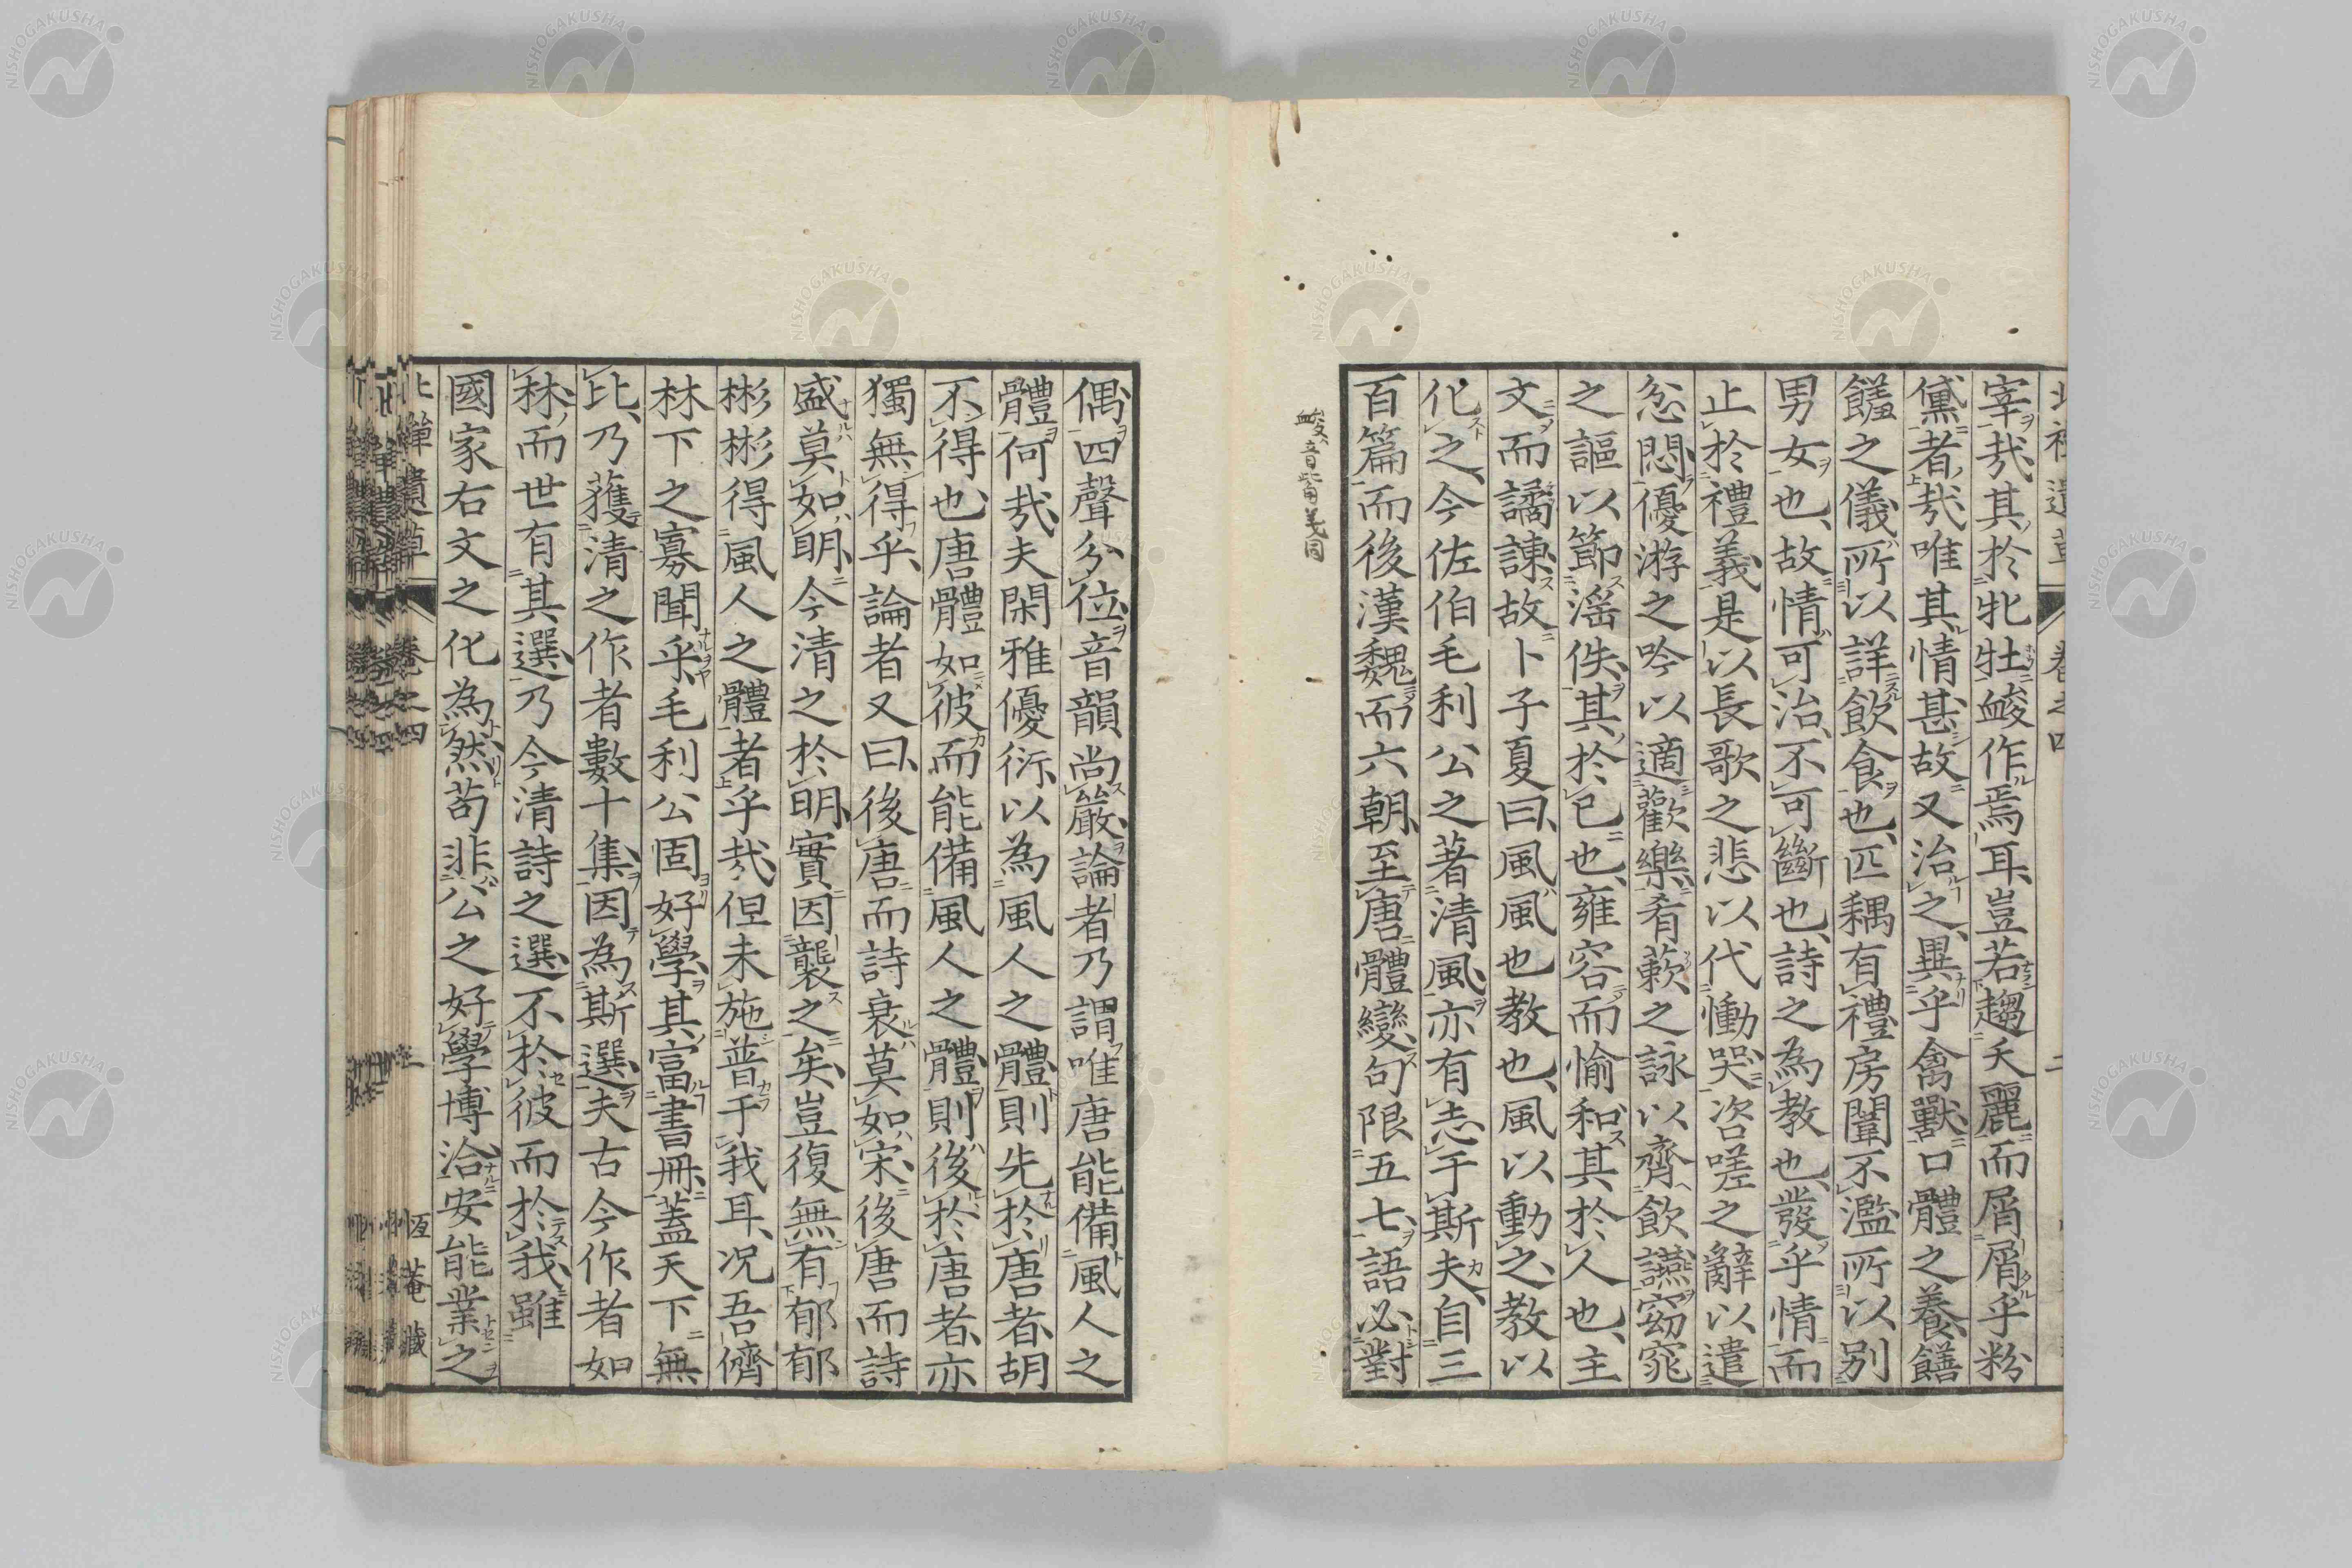 宰哉其於牝牡䘒作焉耳豈若趨夭麗而屑屑乎粉
黛者哉唯其情甚故又治之異乎禽獸口體之養饍
饈之儀所以詳飲食也匹耦有禮房闈不濫所以別
男女也故情可治不可斷也詩之為教也發乎情而
止於禮義是以長歌之悲以代慟哭咨嗟之辭以遣
忿悶優游之吟以適歡樂肴蔌之詠以齊飲讌窈窕
之謳以節滛佚其於已也雍容而愉和其於人也主
文而譎諌故卜子夏曰風風也教也風以動之教以
化之今佐伯毛利公之著清風亦有志于斯夫自三
百篇而後漢魏而六朝至唐體變句限五七語必對
音 義同
偶四聲分位音韻尚嚴論者乃謂唯唐能備風人之
體何哉夫閑雅優衍以為風人之體則先於唐者胡
不得也唐體如彼而能備風人之體則後於唐者亦
獨無得乎論者又曰後唐而詩衰莫如宋後唐而詩
盛莫如明今清之於明實因襲之矣豈復無有郁郁
彬彬得風人之體者乎哉但未施普于我耳況吾儕
林下之寡聞乎毛利公固好學其富書冊蓋天下無
比乃獲清之作者數十集因為斯選夫古今作者如
林而世有其選乃今清詩之選不於彼而於我雖
國家右文之化為然苟非公之好學博洽安能業之
北禪遺草 卷之四 三 恆菴藏